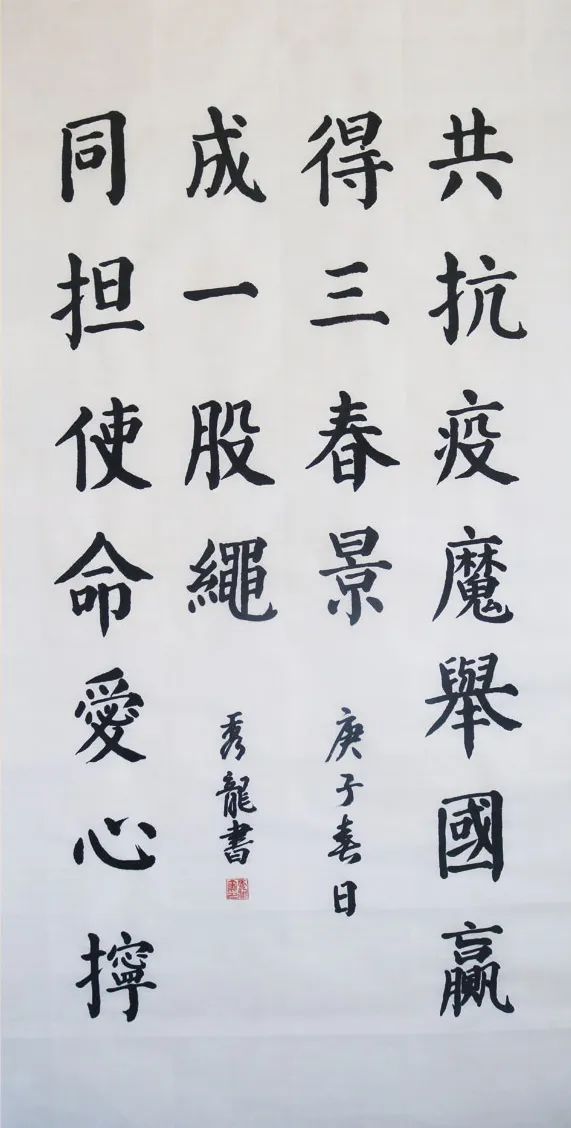 共抗疫魔舉國贏
得三春景
庚子春日
同担使命愛心擰
成一股繩
秀龍書